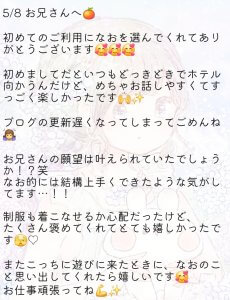 5/8 お兄さんへ🍊
初めてのご利用になおを選んでくれてあり
がとうございます🥰🥰🥰
初めましてだといつもどっきどきでホテル
向かうんだけど、めちゃお話しやすくてす
っごく楽しかったです🙌✨
ブログの更新遅くなってしまってごめんね
🙇‍♀️
お兄さんの願望は叶えられていたでしょう
か！？笑
なお的には結構上手くできたような気がし
てます…！！
制服も着こなせるか心配だったけど、
たくさん褒めてくれてとても嬉しかったで
す🥹♡
またこっちに遊びに来たときに、なおのこ
と思い出してくれたら嬉しいです🥰
お仕事頑張ってね💪✨